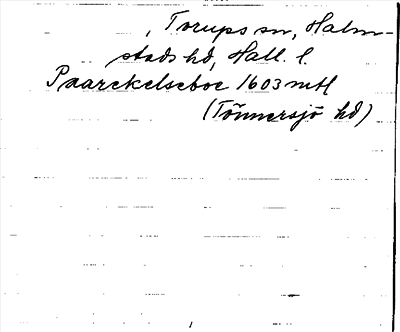 , Torups sn, Halm-
stads hd, Hall. l.
Paarekelseboe 1603 mtl
(Tönnersjö hd)